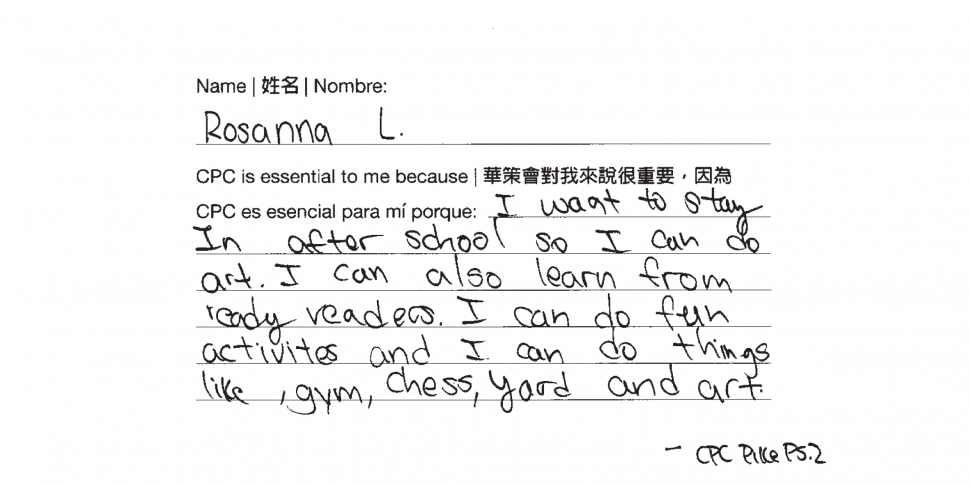 Name | 姓名 | Nombre:
Rosanna L.
CPC is essential to me because | 華策會對我來說很重要，因為
CPC es esencial para mí porque: I want to stay
In after school so I can do
art. I can also learn from
ready readers. I can do fun
activites and I can do things
like , gym, chess, yard and art.
- CPC Pike PS.2